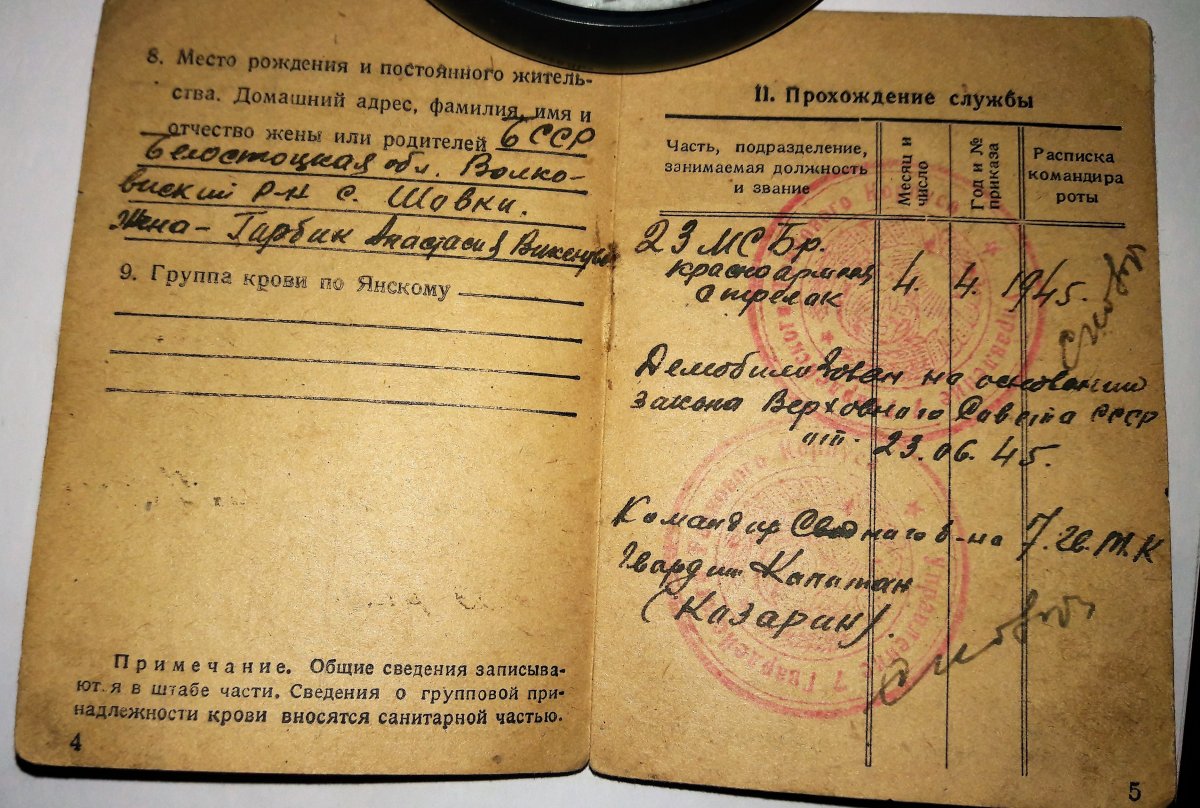 8. Место рождения и постоянного житель-
ства. Домашний адрес, фамилия, имя и
отчество жены или родителей БССР
Белостоцкая обл. Волко-
виский р-н с. Шавки.
Жена - Гарбик Анастасия
9. Группа крови по Янскому
Примечание. Общие сведения записыва-
ют.я в штабе части. Сведения о групповой при-
надлежности крови вносятся санитарной частью.
4
II. Прохождение службы
Часть, подразделение,
занимаемая должность
и звание
Месяц и
число
Год и №
приказа
Расписка
командира
роты
23 МСБр.
красноармеец
стрелак 4. 4. 1945.
Демобилизован на основании
закона Верховного Совета СССР
от 23.06.45.
Командир Сводного б-на 7.Гв.Т.К
Гвардии Капитан
(Казарин).
Управление 7 Гвардейского Корпуса
5